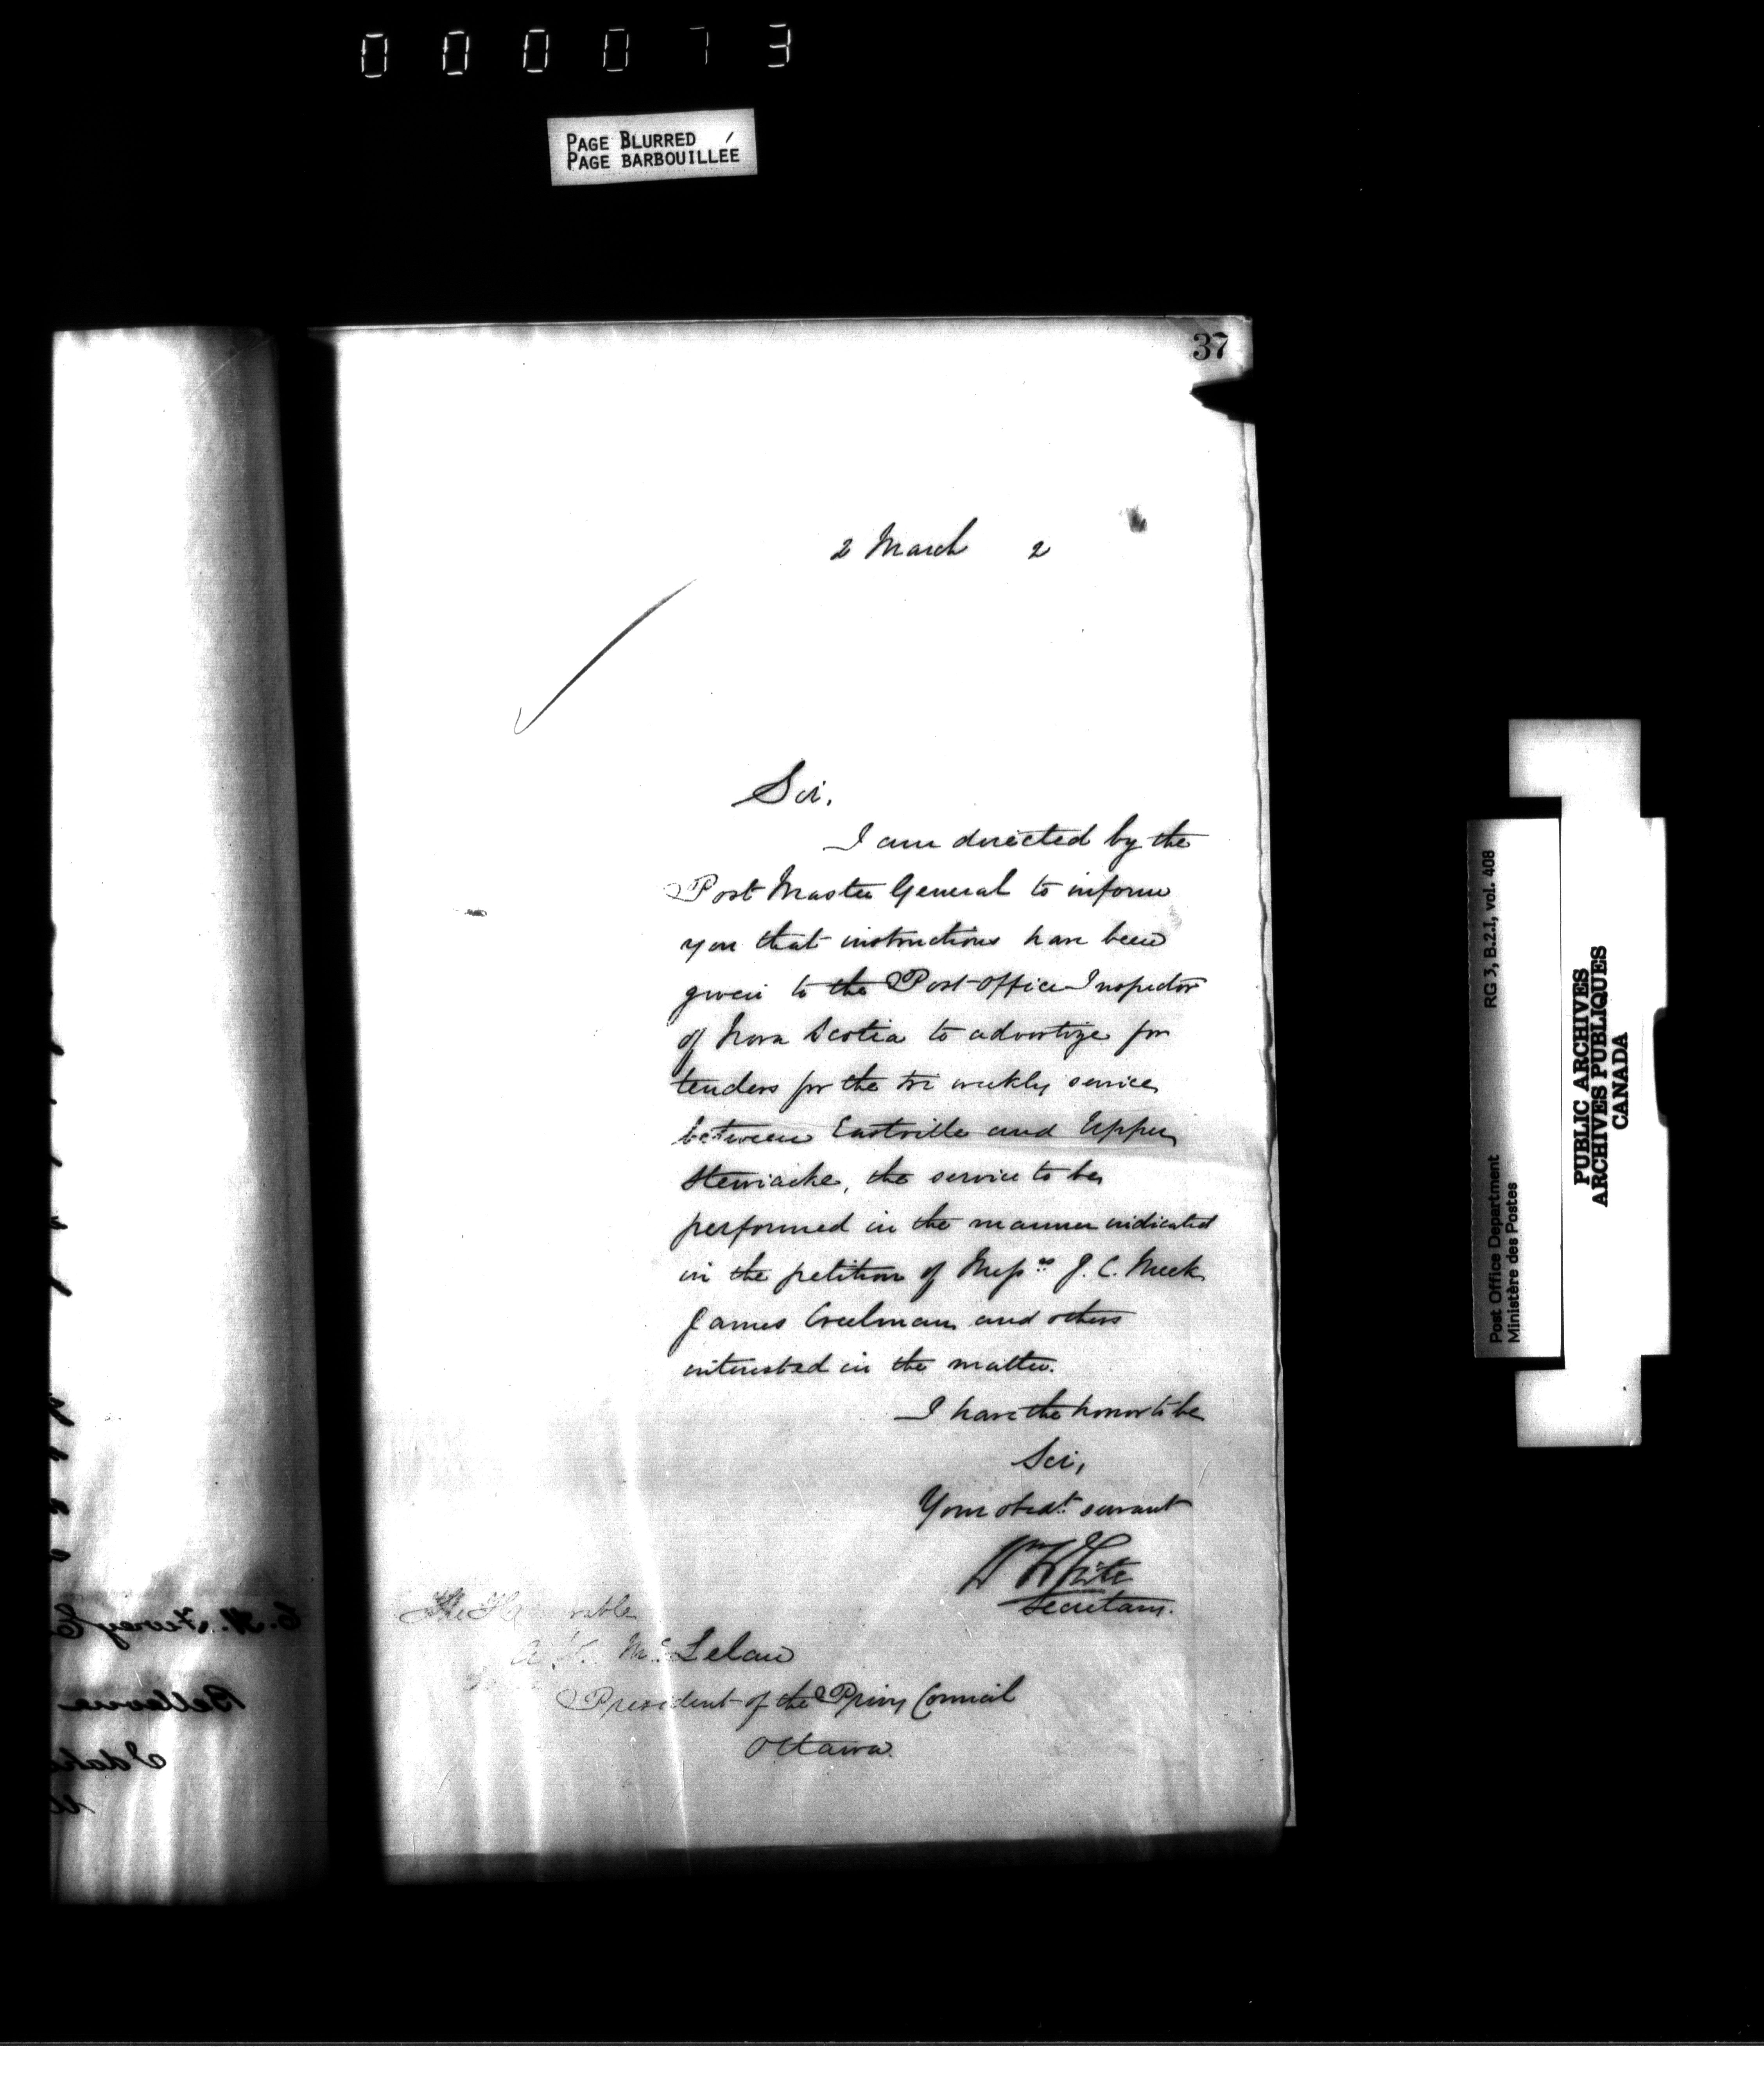 000073
PAGE BLURRED
PAGE BARBOUILLÉE
37
2 March 2
Sir,
I am directed by the
Post Master General to inform
you that instructions have been
given to the Post Office Inspector
of Nova Scotia to advertize for
tenders for the tri weekly service
between Eastville and Upper
Stewiacke, the service to be
performed in the manner indicated
in the petition of Messrs J. C. Meek
James Creelman and others
interested in the matter.
I have the honor to be
Sir,
Your obedt. servant
Wm White
Secretary.
The Honorable
A. McLelan
President of the Privy Council
Ottawa.
Bellevue
Post Office Department RG 3, B.2.I, vol. 408
Ministère des Postes
PUBLIC ARCHIVES
ARCHIVES PUBLIQUES
CANADA